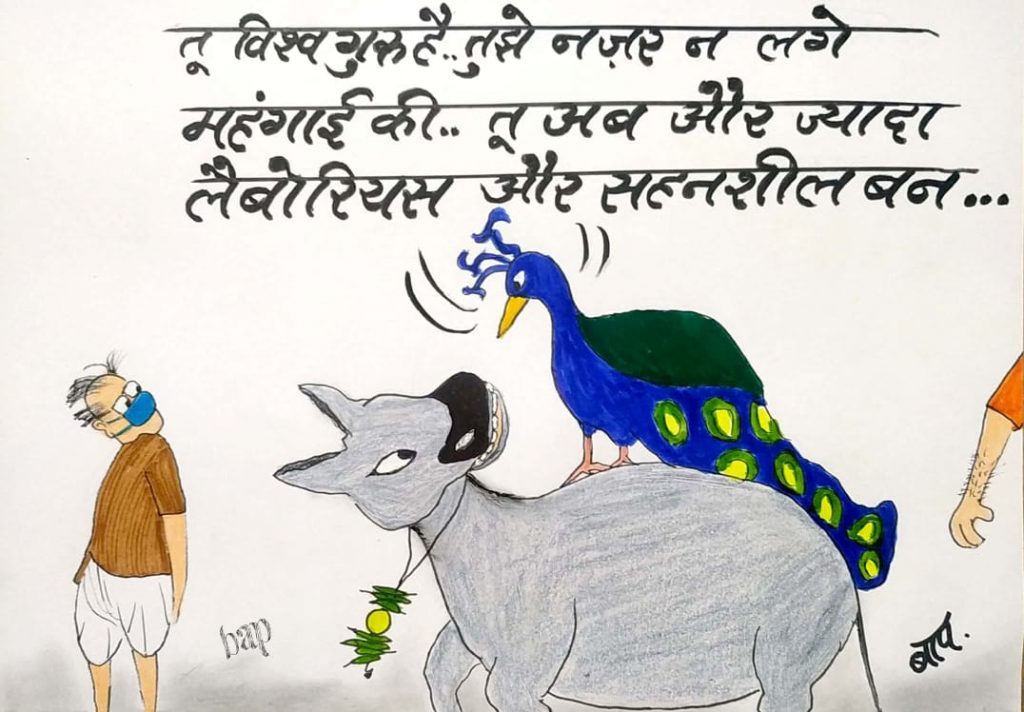 तू विश्व गुरू है.. तुझे नज़र न लगे
महंगाई की.. तू अब और ज्यादा
लैबोरियस और सहनशील बन...
bap
बाप.